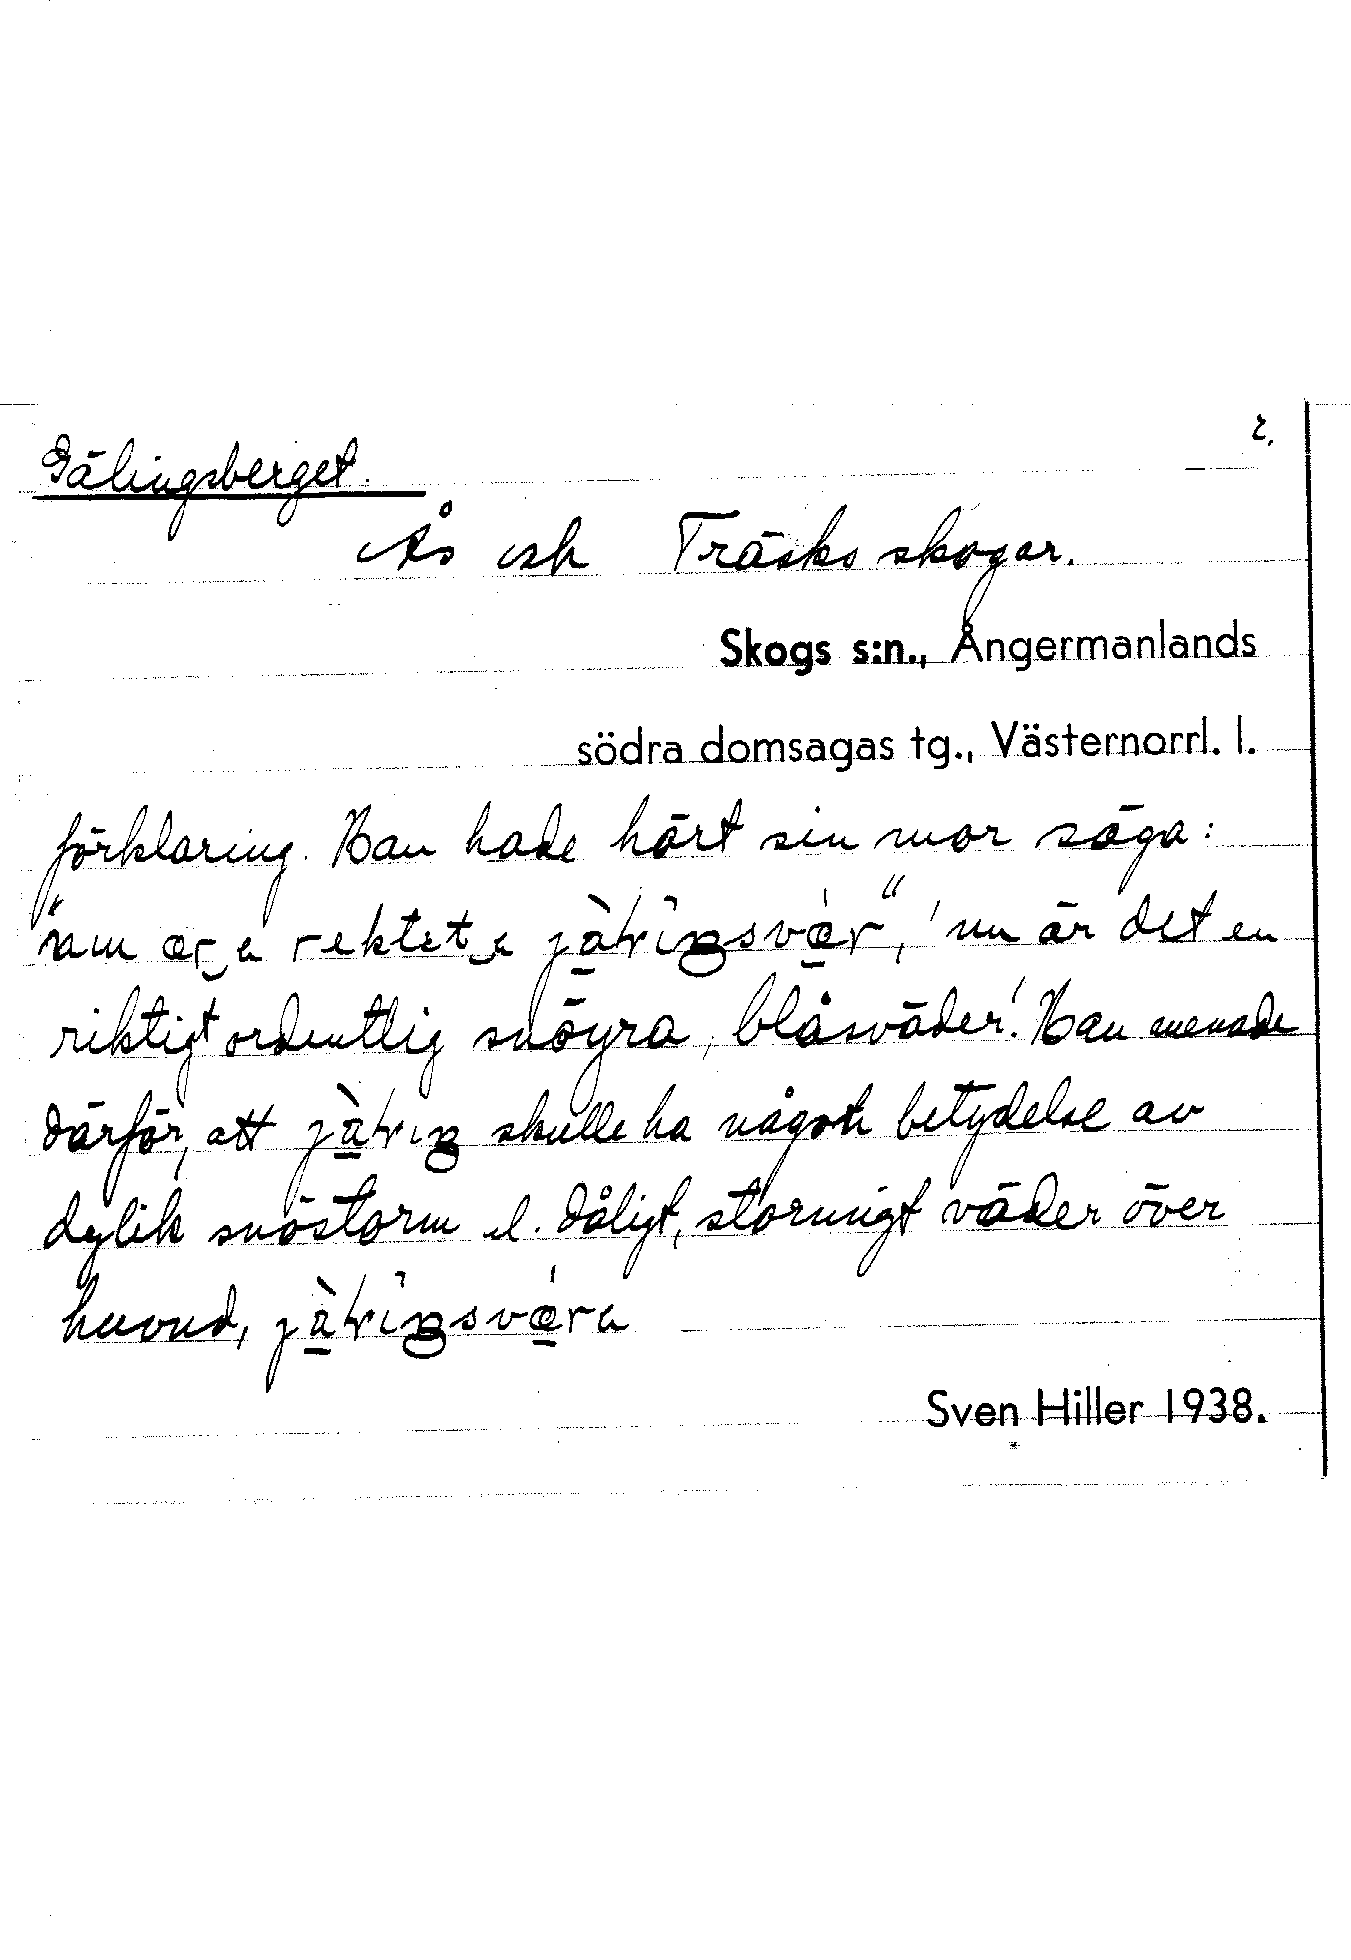 2.
Gälingsberget.
Ås och Träsks skogar.
Skogs s:n., Ångermanlands
södra domsagas tg., Västernorrl. l.
förklaring. Han hade hört sin mor säga:
rektet jàlıŋsvær", 'nu är det en
riktigt ordentlig snöyra, blåsväder'. Han menade
därför, att jàlıŋ skulle ha någon betydelse av
dylik snöstorm el. dåligt, stormigt väder över
huvud, jàlıŋsværa
Sven Hiller 1938.